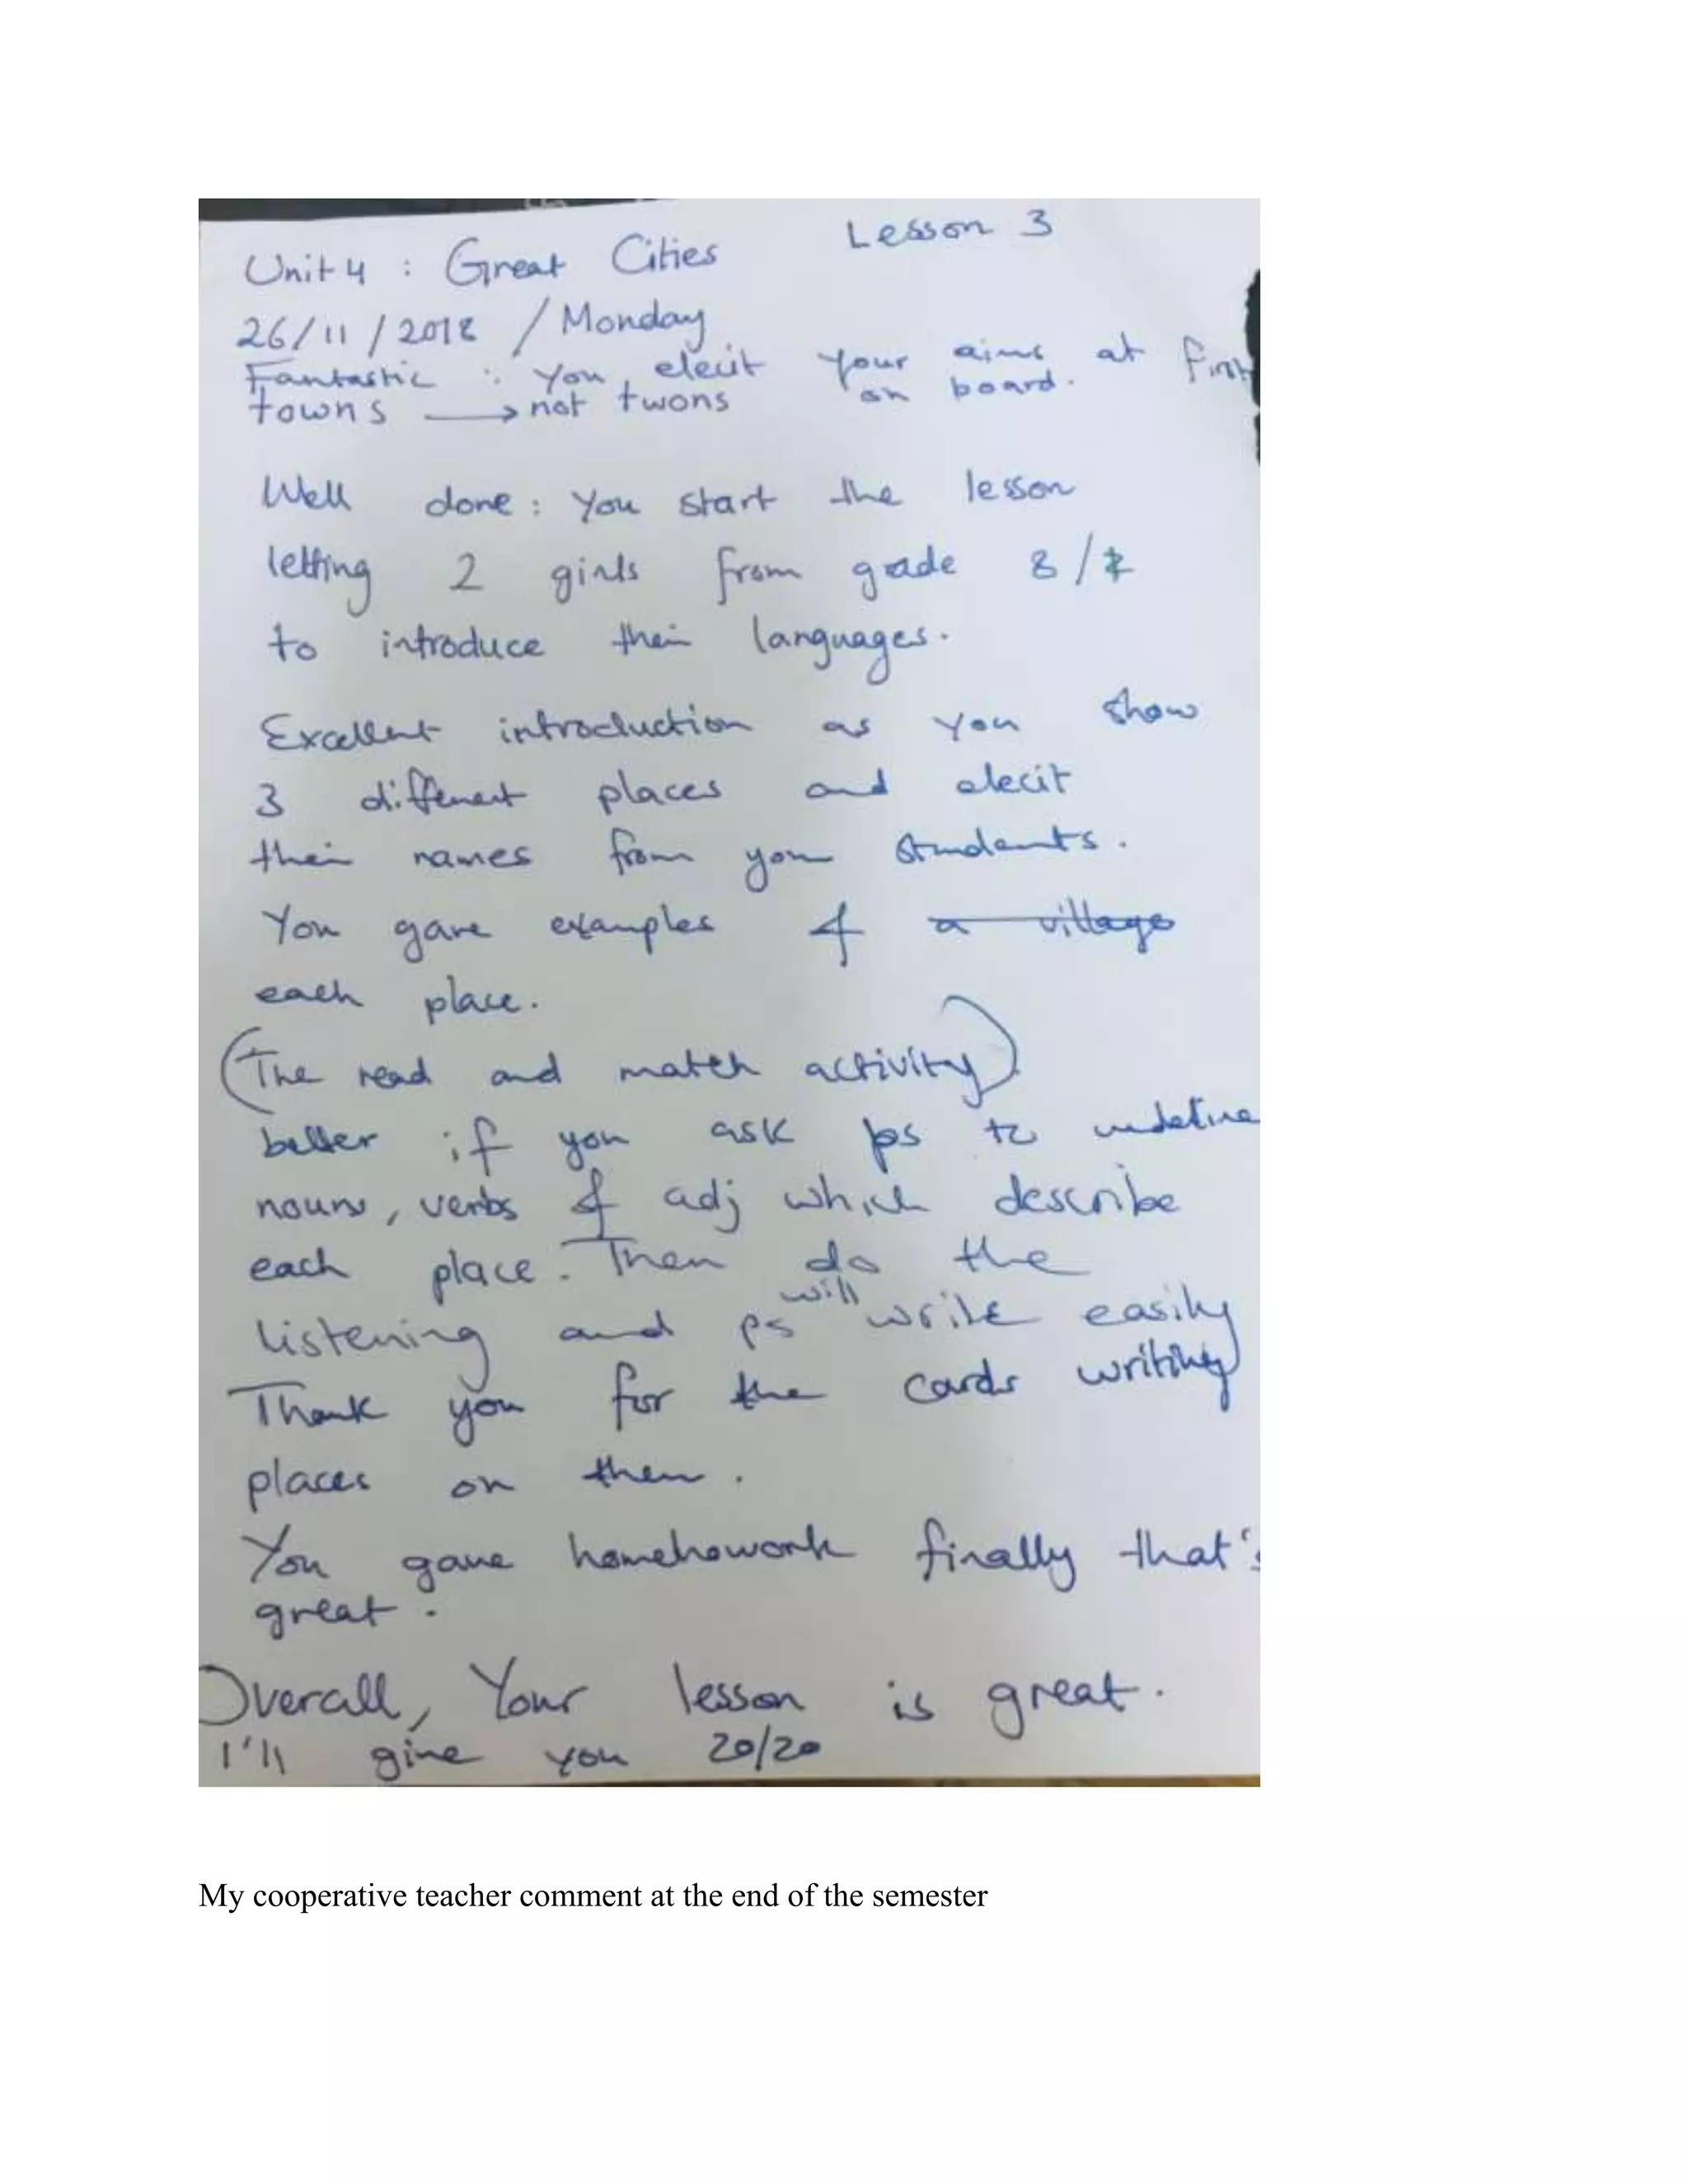 Unit 4 : Great Cities Lesson 3
26/11/2018 / Monday
Fantastic : You elecit your aims at first
on board.
towns → not twons
Well done : You start the lesson
letting 2 girls from grade 8/
to introduce their languages.
Excellent introduction as you show
3 different places and elecit
their names from your students.
You gave examples of a village
each place.
(The read and match activity)
better if you ask ps to underline
nouns, verbs & adj which describe
each place. Then do the
listening and ps will write easily
Thank you for the cards writing
places on them.
You gave homehowork finally that's
great.
Overall, Your lesson is great.
I'll give you 20/20
My cooperative teacher comment at the end of the semester